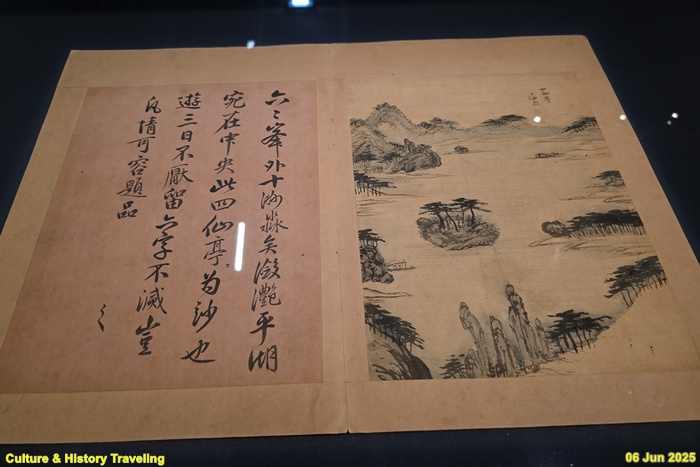 六〻峯外十洲淼矣瀲灧平湖
宛在中央此四仙亭为玅也
遊三日不厭留六字不滅豈
風情可容題品
Culture & History Traveling
06 Jun 2025